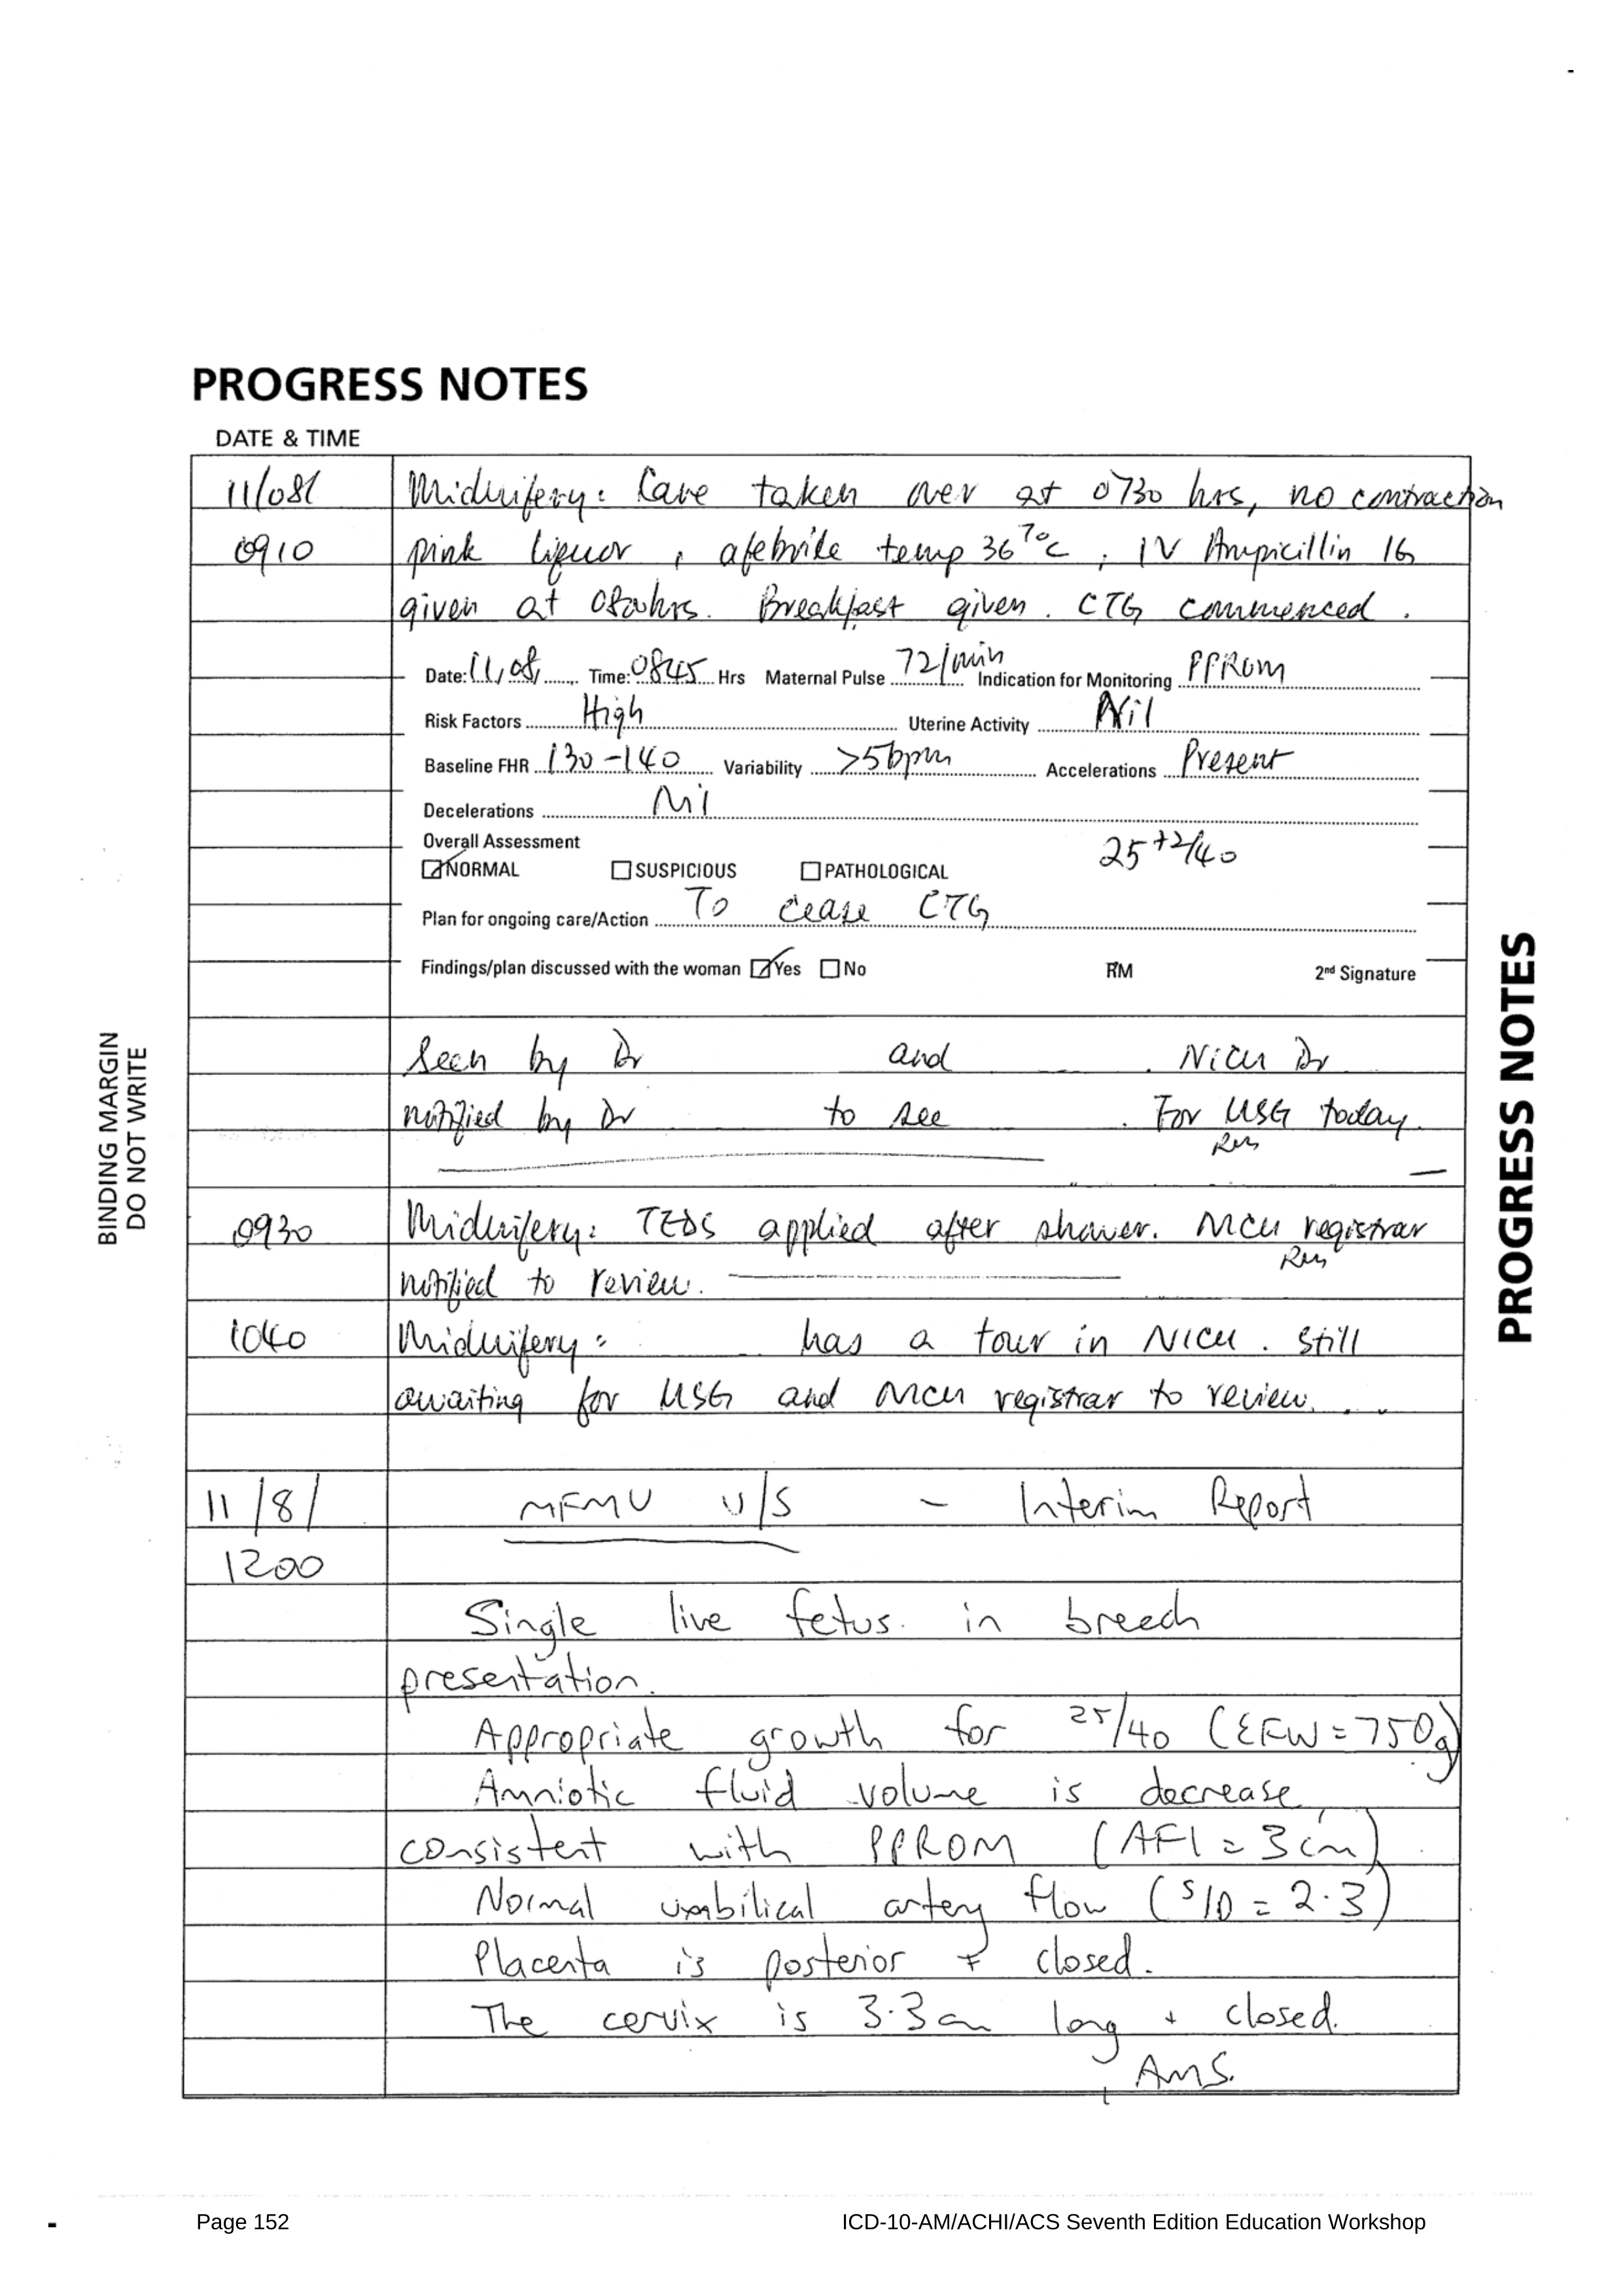 PROGRESS NOTES
DATE & TIME
11/08/ Midwifery: Care taken over at 0730 hrs, no contraction
0910 pink liquor, afebrile temp 36⁷°c, IV Ampicillin 1G
given at 0800hrs. Breakfast given. CTG commenced.
Date: 11/08/ Time: 0845 Hrs Maternal Pulse 72/min Indication for Monitoring PPROM
Risk Factors High Uterine Activity Nil
Baseline FHR 130-140 Variability >5bpm Accelerations Present
Decelerations Nil
Overall Assessment 25⁺²/40
NORMAL SUSPICIOUS PATHOLOGICAL
Plan for ongoing care/Action To cease CTG
Findings/plan discussed with the woman Yes No RM 2nd Signature
Seen by Dr and . NICU Dr
notified by Dr to see . For USG today.
0930 Midwifery: TEDS applied after shower. MCU registrar
notified to review.
1040 Midwifery: has a tour in NICU. Still
awaiting for USG and MCU registrar to review.
11/8/ MFMU U/S - Interim Report
1200
Single live fetus. in breech
presentation.
Appropriate growth for 25/40 (EFW = 750g)
Amniotic fluid volume is decrease,
consistent with PPROM (AFI = 3cm)
Normal umbilical artery flow (S/D = 2.3)
Placenta is posterior + closed.
The cervix is 3.3cm long + closed.
AMS.
BINDING MARGIN
DO NOT WRITE
PROGRESS NOTES
Page 152 ICD-10-AM/ACHI/ACS Seventh Edition Education Workshop